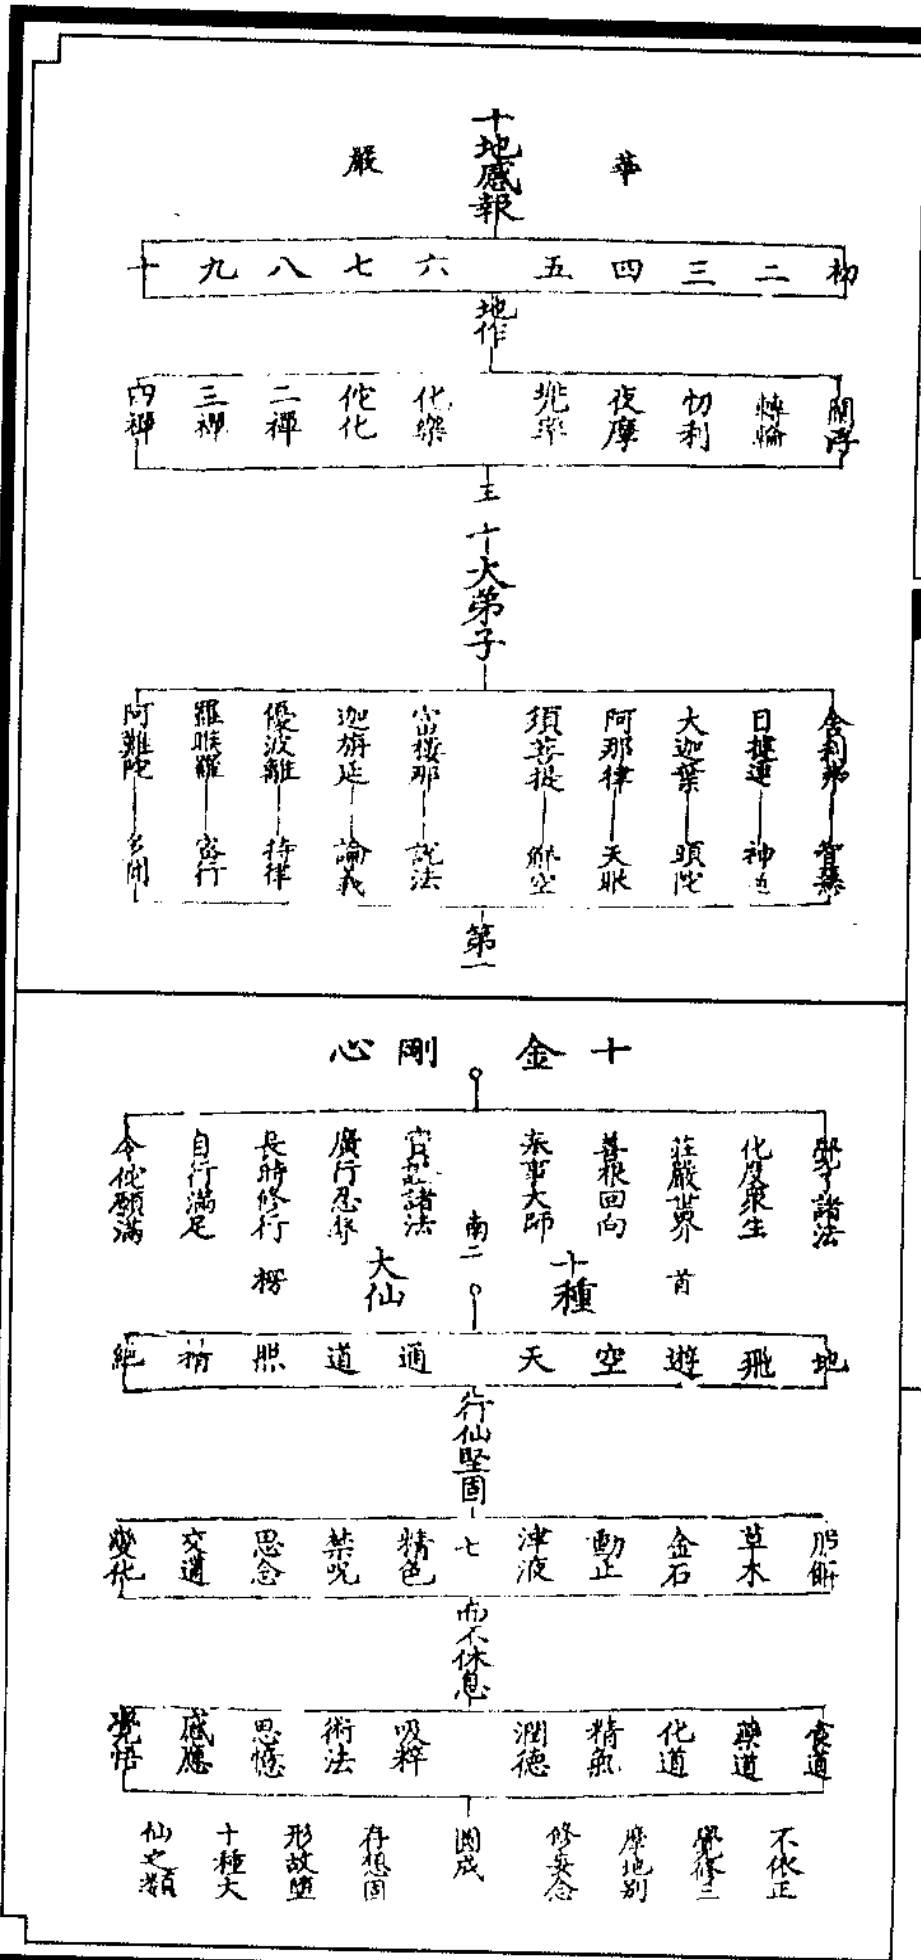 華嚴
十地感報
初 二 三 四 五 六 七 八 九 十
地作
閻浮 轉輪 忉利 夜摩 兠率 化樂 佗化 二禪 三禪 四禪
王
十大弟子
舍利弗 智慧
目揵連 神通
大迦葉 頭陀
阿那律 天眼
須菩提 解空
富樓那 說法
迦旃延 論義
優波離 持律
羅睺羅 密行
阿難陀 多聞
第一
十金剛心
覺了諸法
化度眾生
莊嚴世界
善根回向
奉事大師
諸法
廣行忍辱
長時修行
自行滿足
令佗願滿
南二
首楞
十種大仙
地 飛 遊 空 天 通 道 照 精 絕
行仙堅固
服餌 草木 金石 動止 津液 七 精色 禁呪 思念 交遘 變化
而不休息
食道 藥道 化道 精氣 潤德 吸粹 術法 思憶 感應 覺悟
圓成
不依正
覺修三
摩地別
修妄念
存想固
形故墮
十種大
仙之類